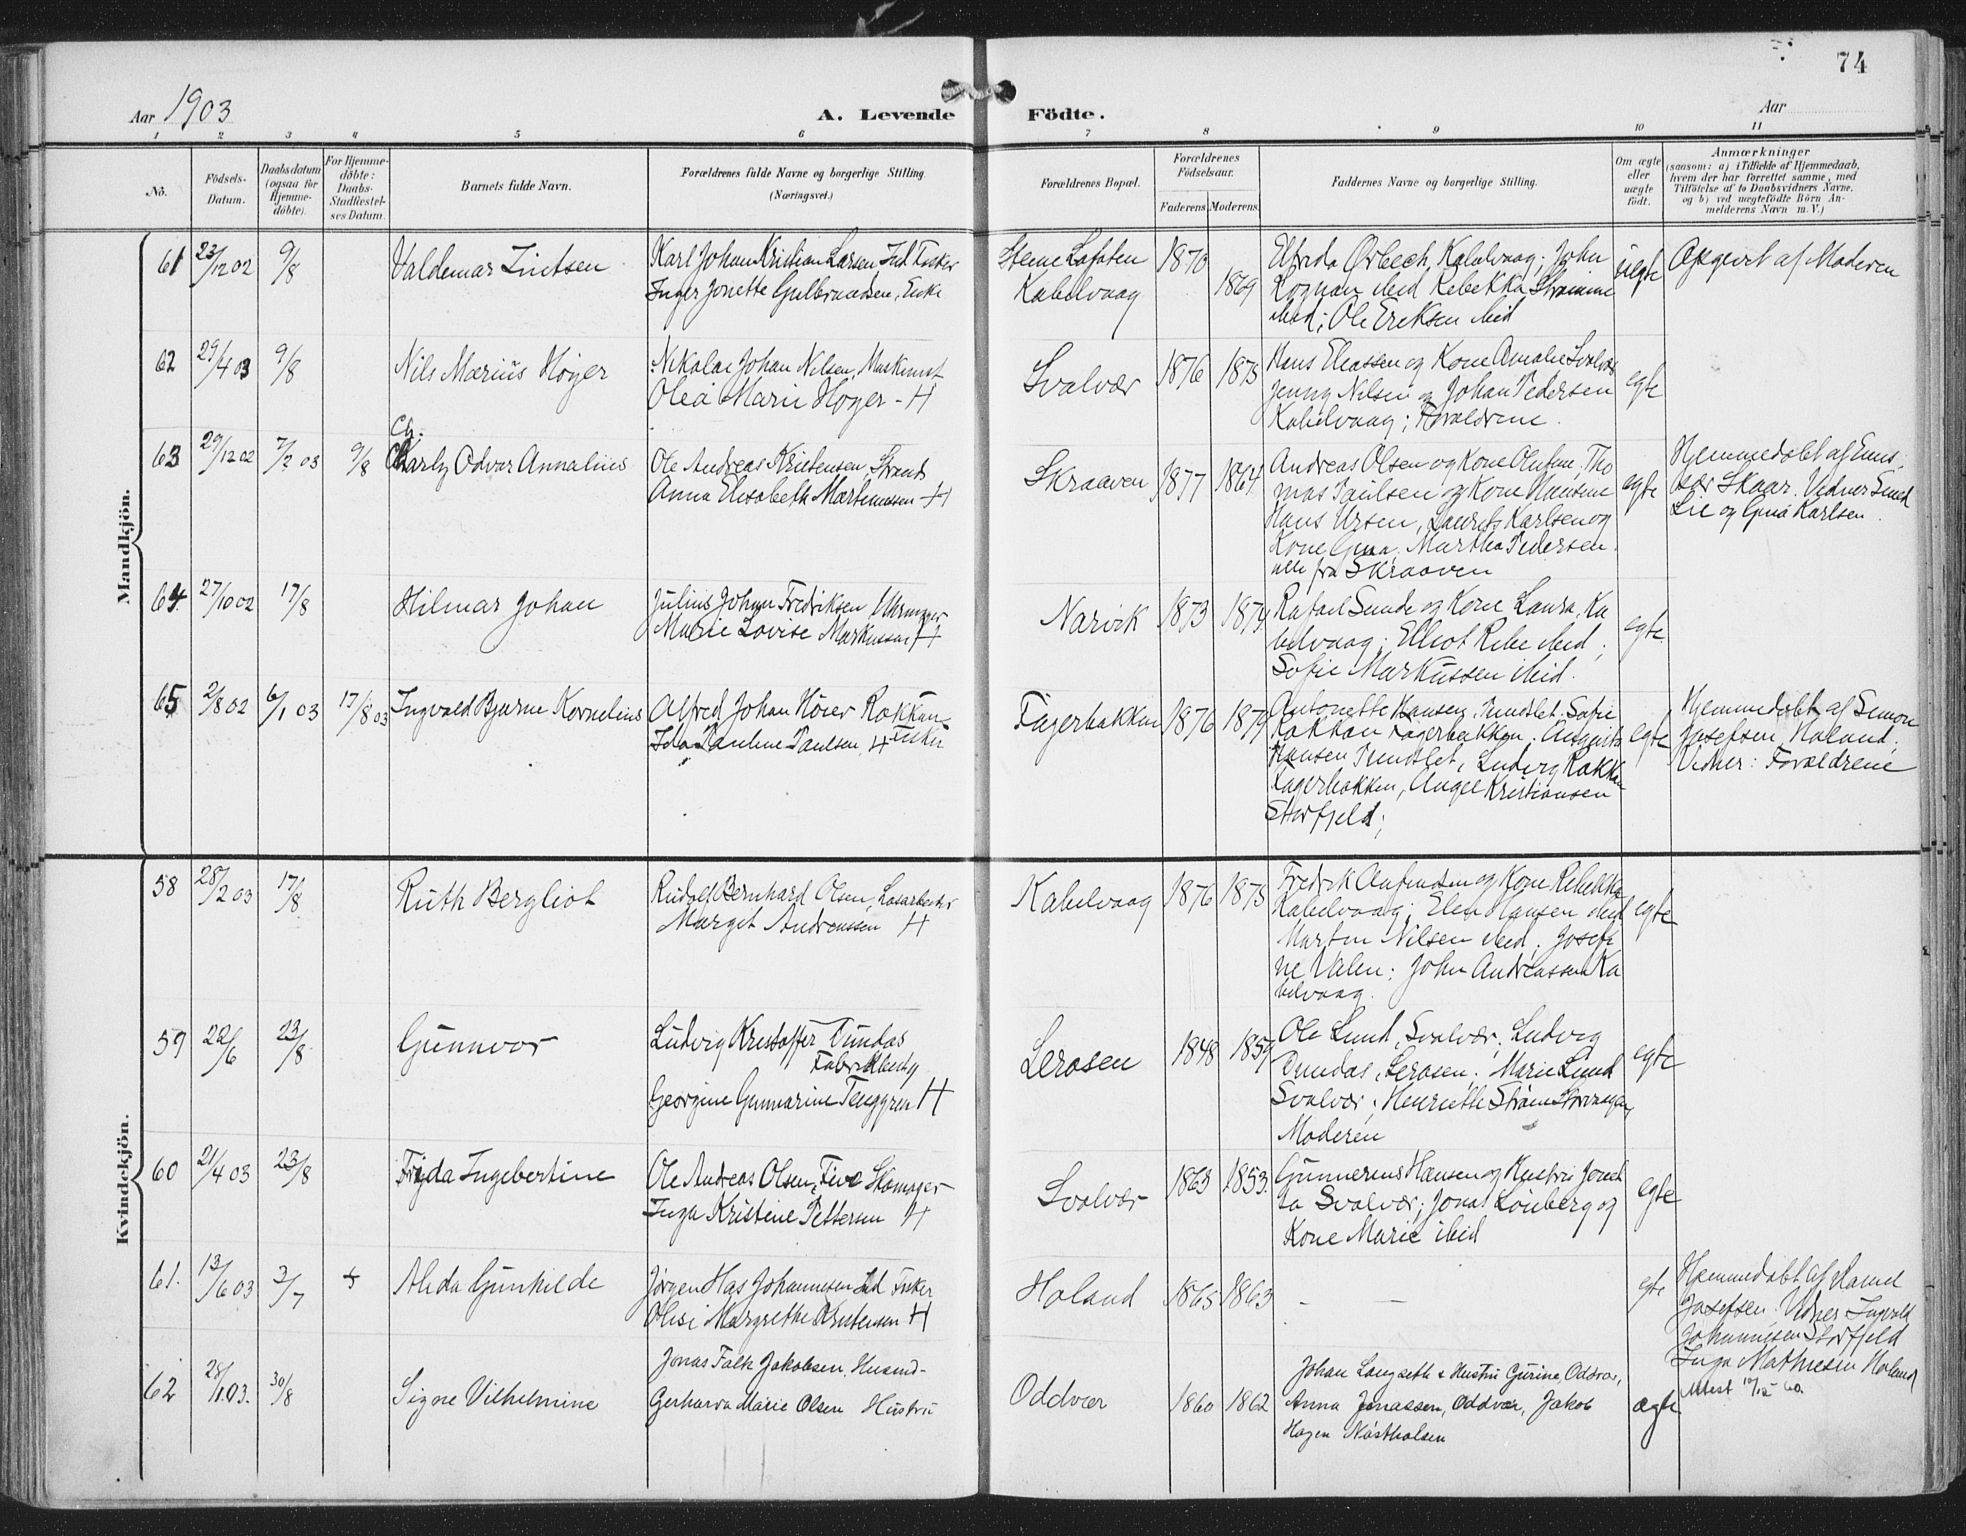 74
Aar 1903
A. Levende Födte.
Aar
1 2 3 4 5 6 7 8 9 10 11
No.
Födsels-Datum.
Daabsdatum (ogsaa for Hjemme-döbte).
For Hjemme-döbte: Daabs-Stadfæstel-ses Datum.
Barnets fulde Navn.
Forældrenes fulde Navne og borgerlige Stilling. (Næringsvei.)
Forældrenes Bopæl.
Forældrenes Födselsaar.
Faderens Moderens
Faddernes Navne og borgerlige Stilling.
Om ægte eller uægte födt.
Anmærkninger
(saasom: a) i Tilfælde af Hjemmedaab,
hvem der har forrettet samme, med
Tilföielse af to Daabsvidners Navne.
og b) ved uægtefödte Börn An-
melderens Navn m. V.)
Mandkjön.
61 23/12 02 9/8 Valdemar
Karl Johan Kristian Larsen Ind Fisker
Inger Jonette Gulbrandsen, Enke
Kabelvaag
1870 1869
Ørbech, Kabelvaag; John
ibid Rebekka
ibid; Ole Eriksen ibid
uegte
Opgevet af Moderen
62 29/4 03 9/8 Nils Marius Höyer
Nikolai Johan Nilsen, Maskinist
Olea Marie Höyer - H
Svolvær
1876 1875
Hans Eliassen og Kone Amalie Svolvær
Jenny Nilsen og Johan Pedersen
Kabelvaag; Forældrene.
egte
63 29/12 02 7/2 03 9/8
Ch.
Charly Odvar Annalius
Ole Andreas Kristensen, Strands
Anna Elisabeth Martinussen H
Skraaven
1877 1864
Andreas Olsen og Kone Olufine, Tho
mas Paulsen og Kone Hansine
Hans Ursen, Laurits Karlsen og
Kone Gina, Martha Pedersen.
alle fra Skraaven
egte
Hjemmedøbt af
Skaar. Vidner
Lie og Gina Karlsen.
64 27/10 02 17/8 Hilmar Johan
Julius Johan Fredriksen Uhrmager
Marie Lovise Markussen H
Narvik
1873 1874
Rafael Sunde og Kone Laura, Ka
belvaag; Elliot Ribe ibid;
Sofie Markussen ibid.
egte
65 2/8 02 6/1 03 17/8 03 Ingvald Bjarne Kornelius
Alfred Johan Höier Rokkan
Ida Pauline Paulsen, H Fisker
Fagerbakken
1876 1879
Antonette Hansen, Sofie
Rokkan Fagerbakken,
Hansen Ludvig Rokkan
Fagerbakken, Angel Kristiansen
Storfjeld;
egte
Hjemmedøbt af Simon
Josefsen, Holand;
Vidner: Forældrene
Kvindekjön.
58 28/2 03 17/8 Ruth Bergliot
Rudolf Bernhard Olsen, Løsarbeider
Marget Andreassen H
Kabelvaag
1876 1875
Fredrik og Kone Rebekka
Kabelvaag; Elen Hansen ibid
Martin Nilsen ibid; Josefi
ne Valen; John Andreassen Ka
belvaag.
egte
59 22/6 23/8 Gunnvor
Ludvig Kristoffer Dundas
Fabrikbesty
Georgine Gunnarine Tenggren H
Lerosen
1848 1859
Ole Lund, Svolvær, Ludvig
Dundas, Lerosen; Marie Lund
Svolvær; Henriette Strøm Storvaagan
Moderen
egte
60 21/4 03 23/8 Frida Ingebertine
Ole Andreas Olsen Five Skomager
Inga Kristine Pettersen H
Svolvær
1863 1853.
Gunnerius Hansen og Hustru
Svolvær; Jonas Lönberg og
Kone Marie ibid
egte
61. 13/6 03 3/7 Alida Gunhilde
Jørgen Johannesen Ind Fisker
Margrethe Kristensen H
Holand
1865 1863
— —
egte
Hjemmedøbt af
Josefsen, Vidner Ingvald
Johannesen Storfjeld
Inga Mathisen Holand
62 28/1 03. 30/8 Signe Vilhelmine
Jonas Falk Jakobsen, Husmd-
Gerharda Marie Olsen Hustru
Oddvær
1860 1862
Johan Langseth & Hustru Gurine, Oddvær,
Anna Jonassen, Oddvær, Jakob
Hagen Nöstholsen
ægte